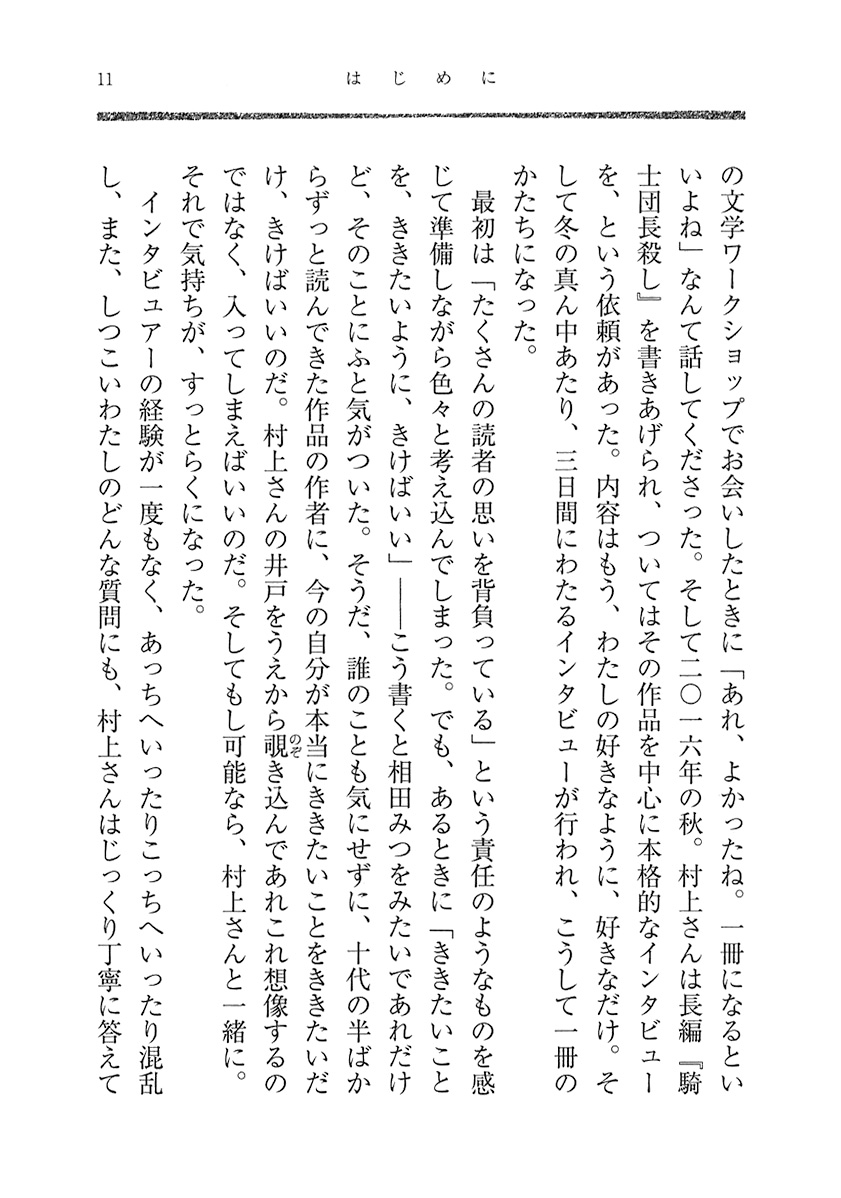 11
はじめに
の文学ワークショップでお会いしたときに「あれ、よかったね。一冊になるとい
いよね」なんて話してくださった。そして二〇一六年の秋。村上さんは長編『騎
士団長殺し』を書きあげられ、ついてはその作品を中心に本格的なインタビュー
を、という依頼があった。内容はもう、わたしの好きなように、好きなだけ。そ
して冬の真ん中あたり、三日間にわたるインタビューが行われ、こうして一冊の
かたちになった。
最初は「たくさんの読者の思いを背負っている」という責任のようなものを感
じて準備しながら色々と考え込んでしまった。でも、あるときに「ききたいこと
を、ききたいように、きけばいい」――こう書くと相田みつをみたいであれだけ
ど、そのことにふと気がついた。そうだ、誰のことも気にせずに、十代の半ばか
らずっと読んできた作品の作者に、今の自分が本当にききたいことをききたいだ
け、きけばいいのだ。村上さんの井戸をうえから覗き込んであれこれ想像するの
のぞ
ではなく、入ってしまえばいいのだ。そしてもし可能なら、村上さんと一緒に。
それで気持ちが、すっとらくになった。
インタビュアーの経験が一度もなく、あっちへいったりこっちへいったり混乱
し、また、しつこいわたしのどんな質問にも、村上さんはじっくり丁寧に答えて